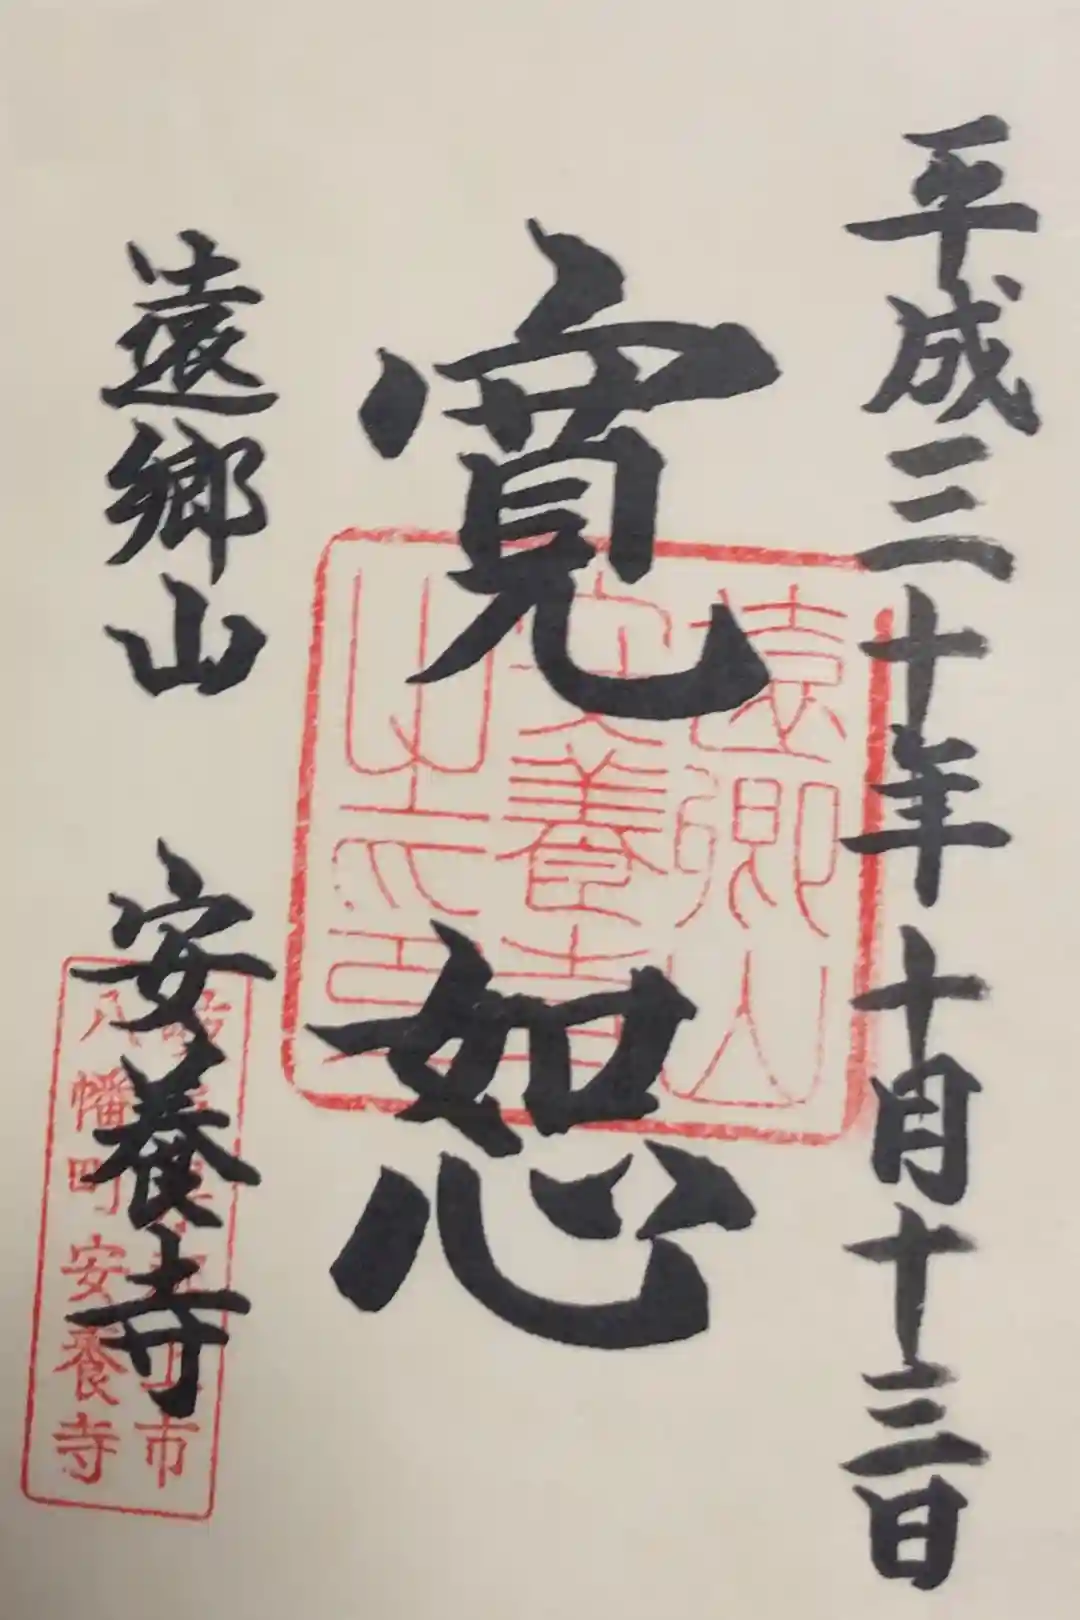 平成三十年十月十三日
寛如心
遠郷山 安養寺
遠郷山
安養寺
之印
市
八幡町安養寺